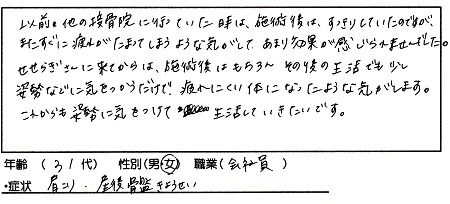 以前、他の接骨院に行っていた時は、施術後は、すっきりしていたのですが、
またすぐに疲れがたまってしまうような気がして、あまり効果が感じられませんでした。
せせらぎさんに来てからは、施術後はもちろん その後の生活でも少し
姿勢などに気をつかうだけで、疲れにくい体になったような気がします。
これからも姿勢に気をつけて 生活していきたいです。
年齢 ( 31代) 性別(男・女) 職業(会社員 )
・症状 肩こり・産後骨盤きょうせい